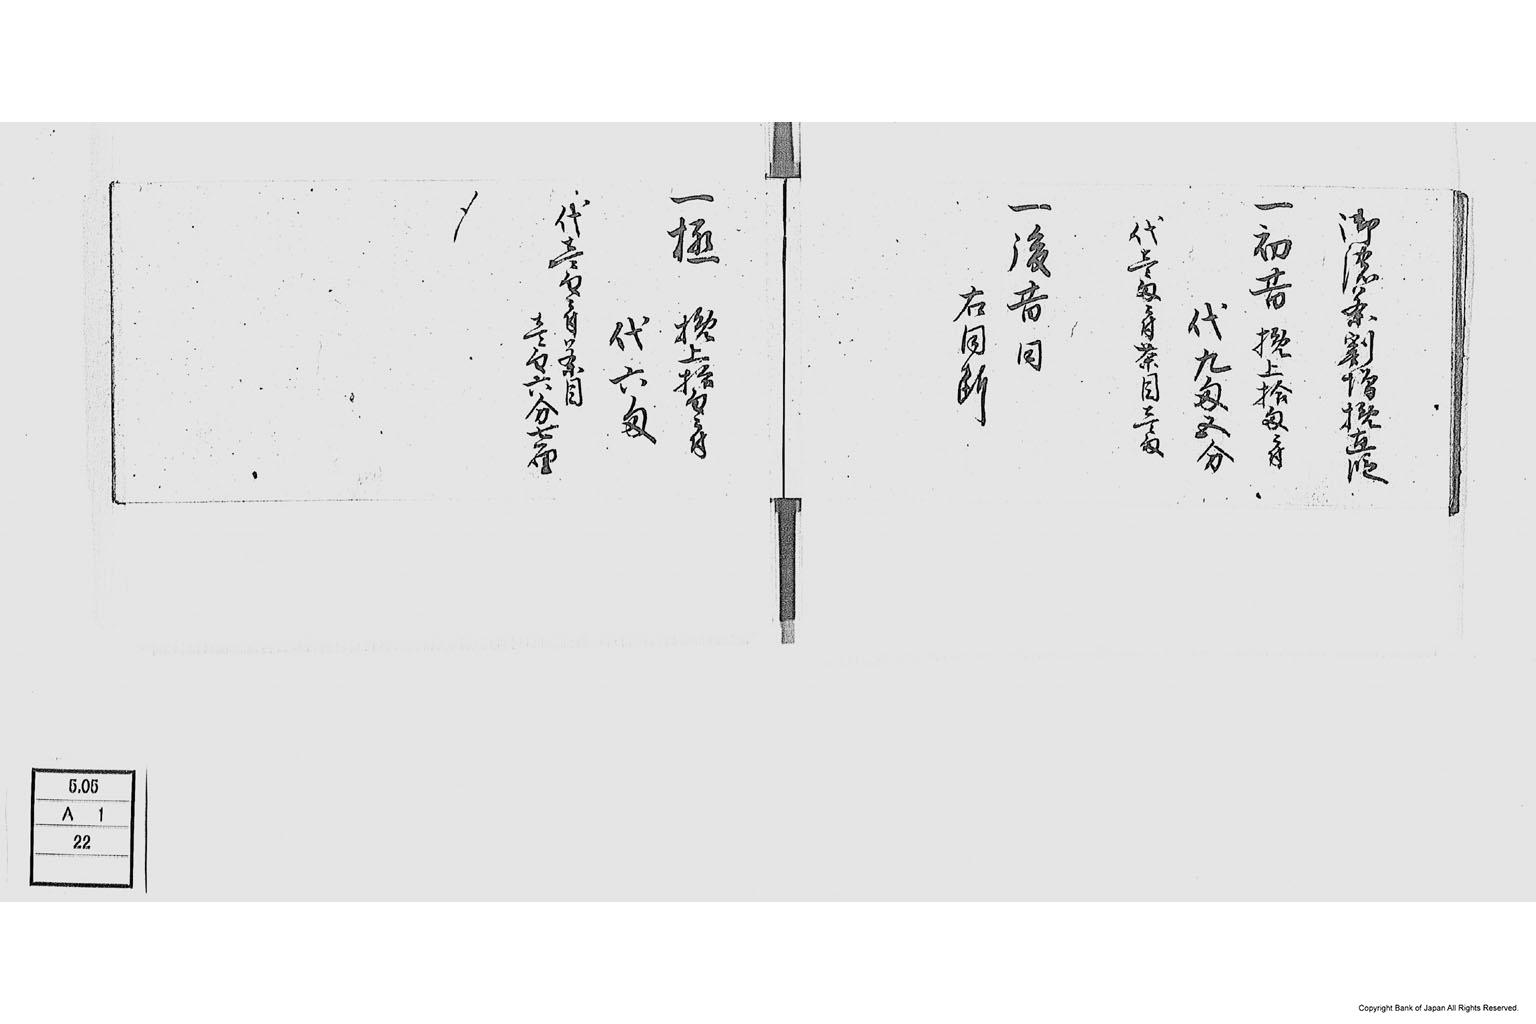 御濃茶割増撰直段
一初昔 撰上拾匁ニ付
代九匁五分
代壱匁ニ付茶目壱匁
一後昔 同
右同断
一極 撰上拾匁ニ付
代六匁
代壱匁ニ付茶目
壱匁六分七厘
5.05
A 1
22
Copyright Bank of Japan All Rights Reserved.